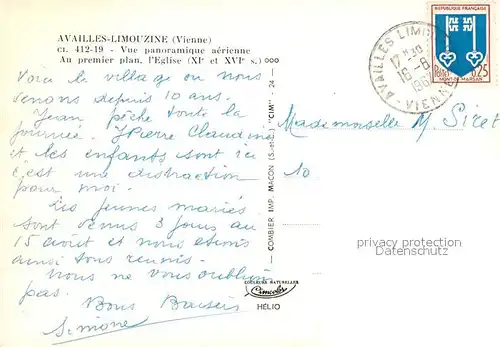 AVAILLES-LIMOUZINE (Vienne)
CI. 412-19 - Vue panoramique aérienne
Au premier plan, l'Eglise (XIe et XVIe s.) 000
Voici le village ou nous
venons depuis 10 ans.
Jean pêche toute la
journée. JPierre Claudine
et les enfants sont ici
c'est une distraction
pour moi.
Les jeunes mariés
sont venus 3 jours au
15 août et nous étions
ainsi tous réunis.
Nous ne vous oublions
pas.
Bons Baisers
Simone
COMBIER IMP. MACON (S.-et-L.) "CIM" - 24 -
COULEURS NATURELLES
Cimcolor
HÉLIO
REPUBLIQUE FRANÇAISE
Postes 0,25
MONT-DE-MARSAN
AVAILLES LIMOUZINE
17 H 30
16-8
VIENNE
Mademoiselle M. Siret
10
protection copyright
Datenschutz